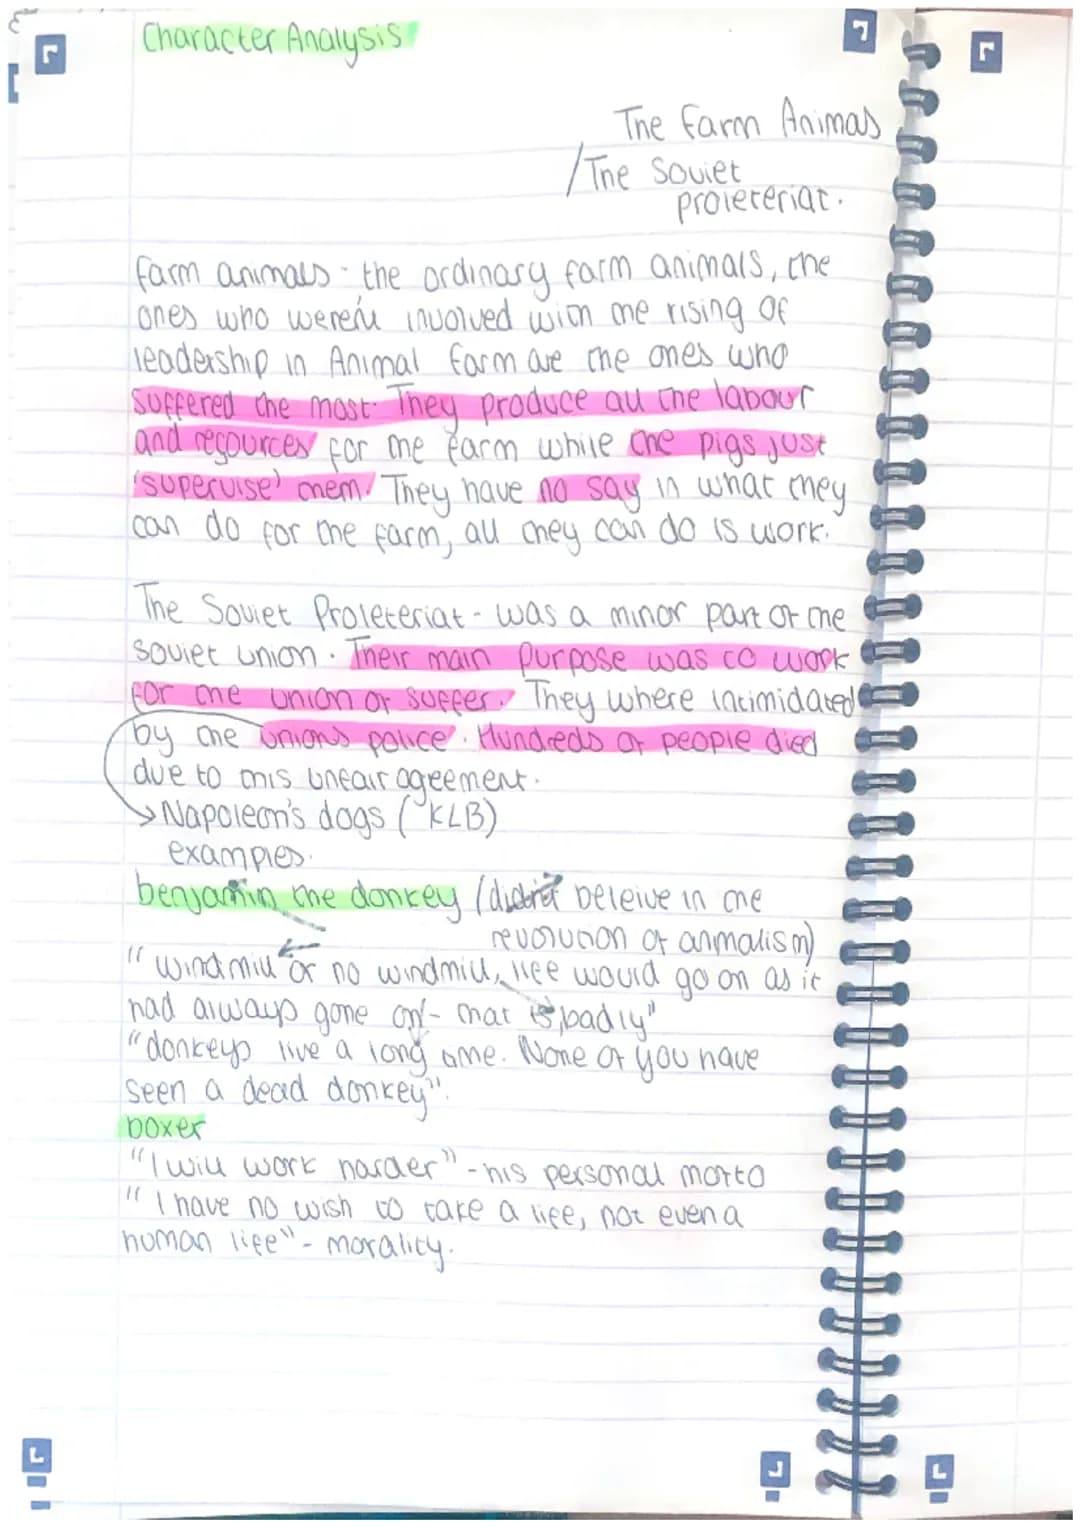 Character Analysis
The Farm Animas
/The Soviet
proleteriat.
farm animals - the ordinary farm animals, the
ones who weren't involved with the rising of
leadership in Animal farm are the ones who
suffered the most. They produce all the labour
and recources for the farm while the pigs just
'supervise' them. They have no say in what they
can do for the farm, all they can do is work.
The Soviet Proleteriat - was a minor part of the
soviet union. Their main purpose was to work
for the union or suffer. They where intimidated
by the unions police. Hundreds of people died
due to this unfair agreement.
Napoleon's dogs (KLB)
examples.
benjamin the donkey (didn't beleive in the
revolution of anmalism)
"windmill or no windmill, life would go on as it
had always gone on - that is, badly"
"donkeys live a long time. None of you have
seen a dead donkey".
boxer
"I will work harder" - his personal motto
"I have no wish to take a life, not even a
human life" - morality.